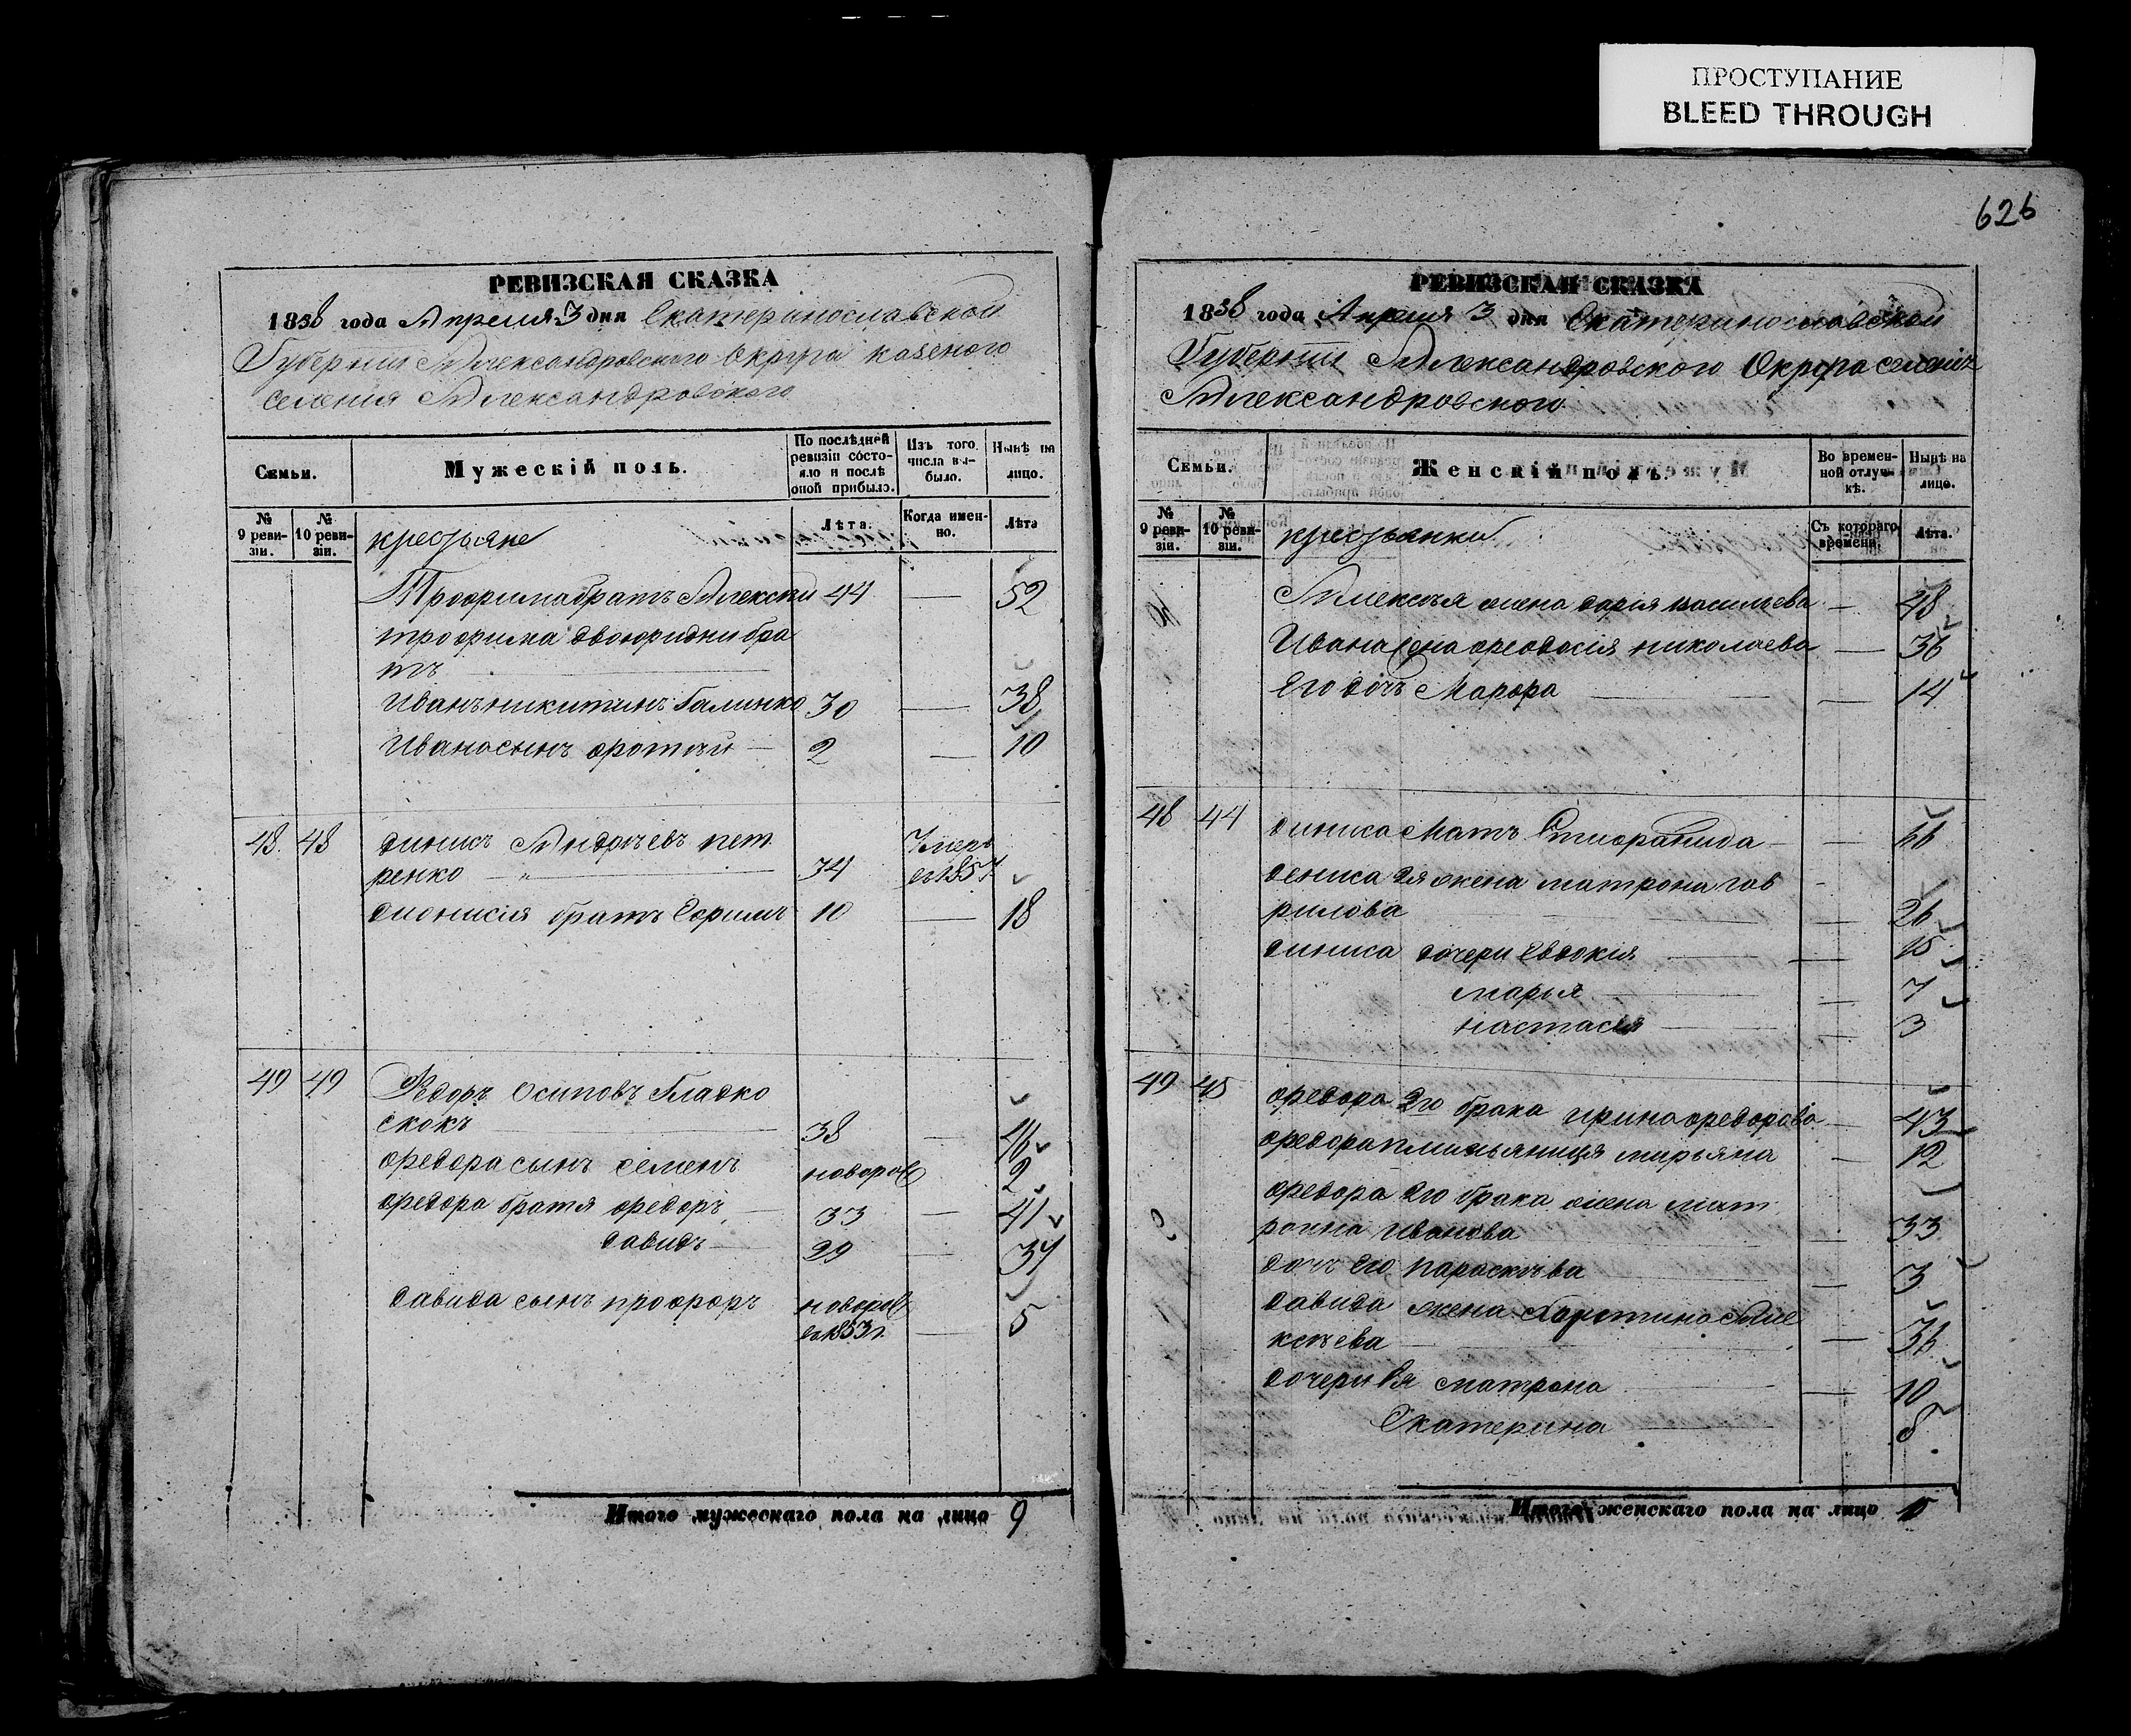 ПРОСТУПАНИЕ
BLEED THROUGH
626
РЕВИЗСКАЯ СКАЗКА
1858 года Апреля 3 дня Екатеринославской
Губернии Александровского Округа казеного
селения Александровского
Семьи.
Мужескій полъ.
По послѣдней ревизіи состояло и послѣ оной прибыло.
Изъ того числа выбыло.
Нынѣ на лицо.
№ 9 ревизіи.
№ 10 ревизіи.
крестьяне
Лѣта.
Когда именно.
Лѣта
Трофима братъ Алексей 44 — 52
трофима двоюридни бра
тъ
Иванъ никитинъ Галинко 30 — 38
Ивана сынъ фотъй — 2 — 10
48. 48 динисъ Андреевъ пет
ренко — 34 Умеръ въ 1857
дионисія братъ Ефимъ 10 — 18
49 49 Федоръ Осиповъ Гладко
скокъ 38 — 46
федора сынъ семенъ новорож 2
федора братя федоръ — 33 — 41
давидъ — 29 — 37
давида сынъ профоръ новорож
въ 1853г. — 5
Итого мужескаго пола на лицо 9
РЕВИЗСКАЯ СКАЗКА
1858 года Апреля 3 дня Екатеринославской
Губернии Александровского Округа селенія
Александровского
Семьи.
Женскій полъ.
Во временной отлучкѣ.
Нынѣ на лицо.
№ 9 ревизіи.
№ 10 ревизіи.
крестьянки
Съ котораго времени.
Лѣта.
Алексѣя жена дарія васильева — 48
Ивана жена феодосія николаева — 36
Его дочь Марфа — 14
48 44 диниса Мать — 66
дениса 2я жена матрона гав
рилова — 26
диниса дочери Евдокія — 15
марья — 7
настасия — 3
49 45 федора 2го брака ирина федорова — 43
федора племьяница мирьяна — 12
федора 2го брака жена мат
рона Иванова — 33
дочь Его параскъва — 3
давида жена Але
ксъева — 36
дочери Ея матрона — 10
Екатерина 8
Итого женскаго пола на лицо